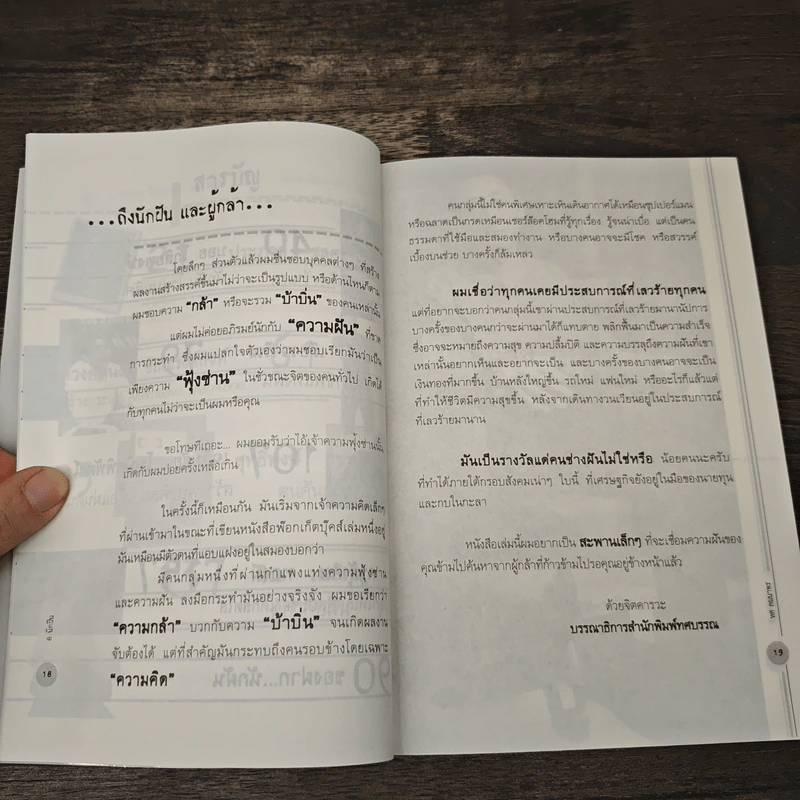 ...ถึงนักฝัน และผู้กล้า...
โดยลึกๆ ส่วนตัวแล้วผมชื่นชอบบุคคลต่างๆ ที่สร้าง
ผลงานสร้างสรรค์ขึ้นมาไม่ว่าจะเป็นรูปแบบ หรือด้านไหนก็ตาม
ผมชอบความ "กล้า" หรือจะรวม "บ้าบิ่น" ของคนเหล่านั้น
แต่ผมไม่ค่อยอภิรมย์นักกับ "ความฝัน" ที่ขาด
การกระทำ ซึ่งผมแปลกใจตัวเองว่าผมชอบเรียกมันว่าเป็น
เพียงความ "ฟุ้งซ่าน" ในชั่วขณะจิตของคนทั่วไป เกิดได้
กับทุกคนไม่ว่าจะเป็นผมหรือคุณ
ขอโทษทีเถอะ... ผมยอมรับว่าไอ้เจ้าความฟุ้งซ่านนั้น
เกิดกับผมบ่อยครั้งเหลือเกิน
ในครั้งนี้ก็เหมือนกัน มันเริ่มจากเจ้าความคิดเล็กๆ
ที่ผ่านเข้ามาในขณะที่เขียนหนังสือพ๊อกเก็ตบุ๊คส์เล่มหนึ่งอยู่
มันเหมือนมีตัวตนที่แอบแฝงอยู่ในสมองบอกว่า
มีคนกลุ่มหนึ่งที่ผ่านกำแพงแห่งความฟุ้งซ่าน
และความฝัน ลงมือกระทำมันอย่างจริงจัง ผมขอเรียกว่า
"ความกล้า" บวกกับความ "บ้าบิ่น" จนเกิดผลงาน
จับต้องได้ แต่ที่สำคัญมันกระทบถึงคนรอบข้างโดยเฉพาะ
"ความคิด"
18
คนกลุ่มนี้ไม่ใช่คนพิเศษเหาะเหินเดินอากาศได้เหมือนซุปเปอร์แมน
หรือฉลาดเป็นกรดเหมือนเชอร์ล๊อคโฮมที่รู้ทุกเรื่อง รู้จนน่าเบื่อ แต่เป็นคน
ธรรมดาที่ใช้มือและสมองทำงาน หรือบางคนอาจจะมีโชค หรือสวรรค์
เบื้องบนช่วย บางครั้งก็ล้มเหลว
ผมเชื่อว่าทุกคนเคยมีประสบการณ์ที่เลวร้ายทุกคน
แต่ที่อยากจะบอกว่าคนกลุ่มนี้เขาผ่านประสบการณ์ที่เลวร้ายมานานัปการ
บางครั้งของบางคนกว่าจะผ่านมาได้ก็แทบตาย พลิกฟื้นมาเป็นความสำเร็จ
ซึ่งอาจจะหมายถึงความสุข ความปลื้มปิติ และความบรรลุถึงความฝันที่เขา
เหล่านั้นอยากเห็นและอยากจะเป็น และบางครั้งของบางคนอาจจะเป็น
เงินทองที่มากขึ้น บ้านหลังใหญ่ขึ้น รถใหม่ แฟนใหม่ หรืออะไรก็แล้วแต่
ที่ทำให้ชีวิตมีความสุขขึ้น หลังจากเดินทางวนเวียนอยู่ในประสบการณ์
ที่เลวร้ายมานาน
มันเป็นรางวัลแด่คนช่างฝันไม่ใช่หรือ น้อยคนนะครับ
ที่ทำได้ภายใต้กรอบสังคมเน่าๆ ใบนี้ ที่เศรษฐกิจยังอยู่ในมือของนายทุน
และกบในกะลา
หนังสือเล่มนี้ผมอยากเป็น สะพานเล็กๆ ที่จะเชื่อมความฝันของ
คุณข้ามไปค้นหาจากผู้กล้าที่ก้าวข้ามไปรอคุณอยู่ข้างหน้าแล้ว
ด้วยจิตคารวะ
บรรณาธิการสำนักพิมพ์ทศบรรณ
19